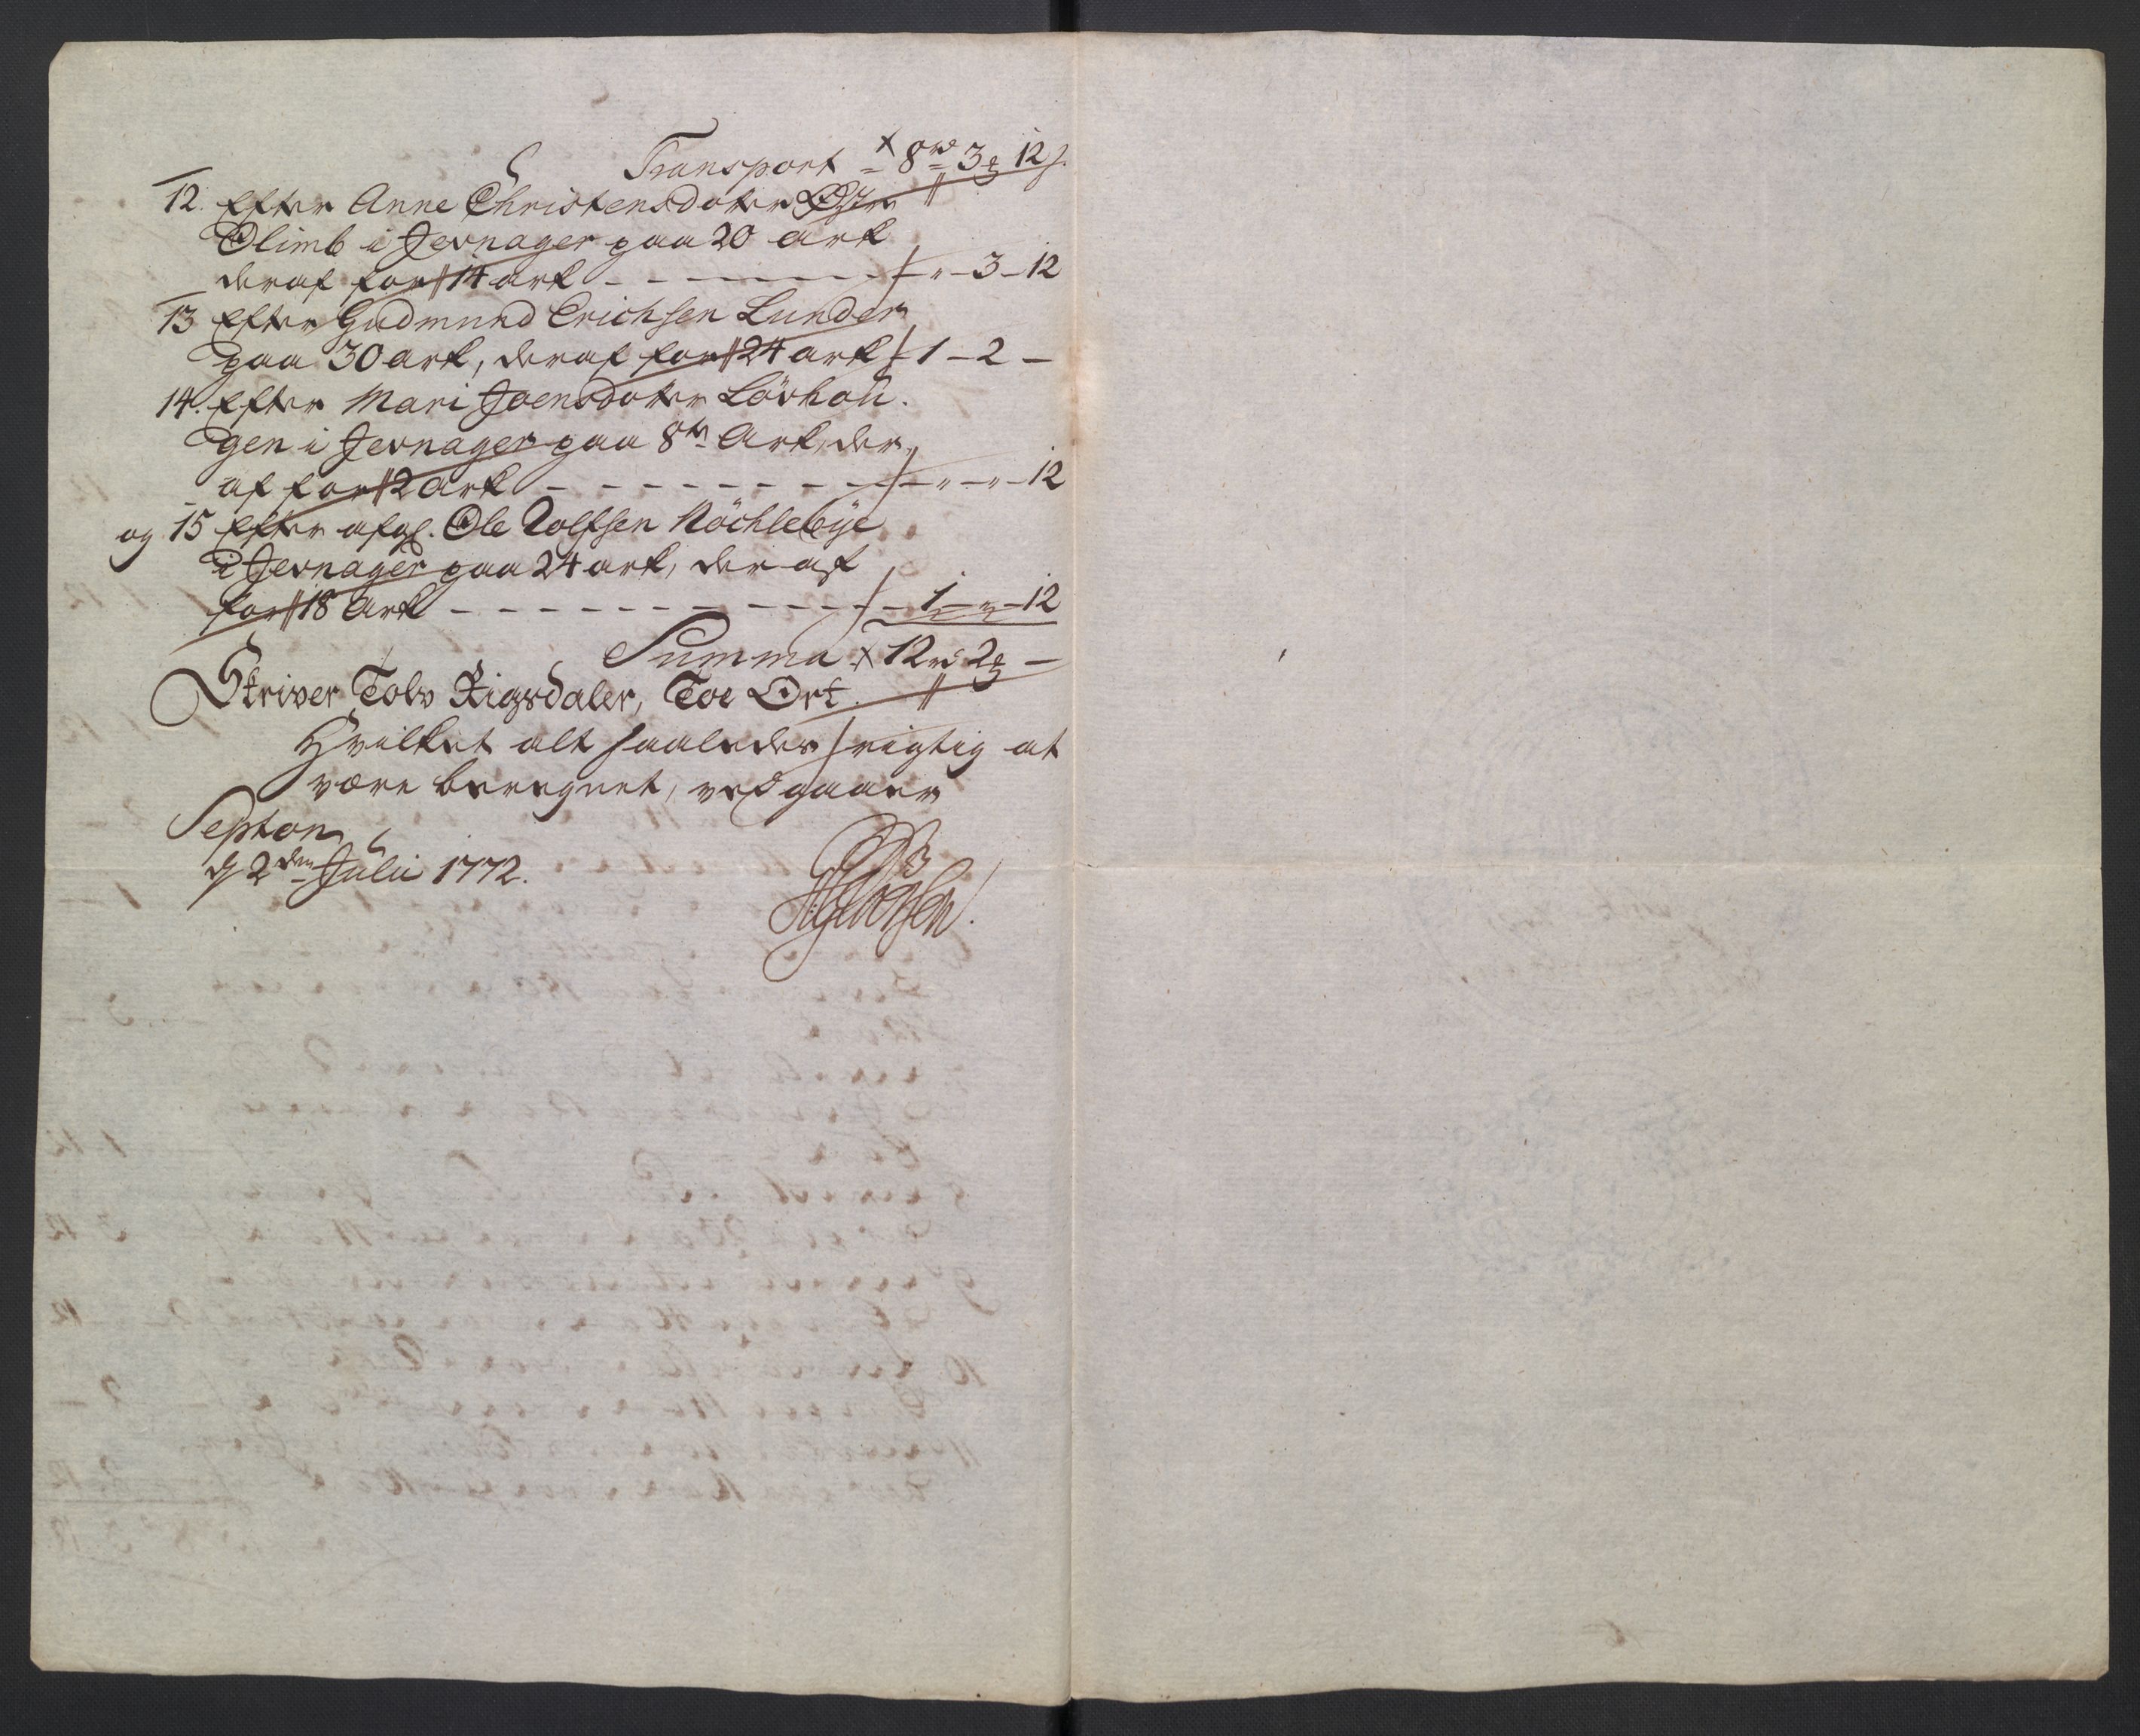 Transport - 8 rd 3 12 s.
12. Efter Anne Christensdatter
Olimb i Jevnager paa 20 ark
deraf for 14 ark - - - - " - 3 - 12
13 Efter Gudmund Erichsen Lunder
paa 30 ark, deraf for 24 ark 1 - 2 -
14. Efter Mari Joensdatter Lövhou-
gen i Jevnager paa 8te Ark, der-
af for 2 ark - - - - - " - " - 12
og 15 Efter afg. Ole Rolfsen Nöchlebÿe
i Jevnager paa 24 ark, deraf
for 18 Ark - - - - - 1 - " - 12
Summa 12 rd 2 -
Skriver Tolv Rigsdaler, Toe Ort.
Hvilket alt saaledes rigtig at
være beregnet, vedgaaer
d 2den Julii 1772.